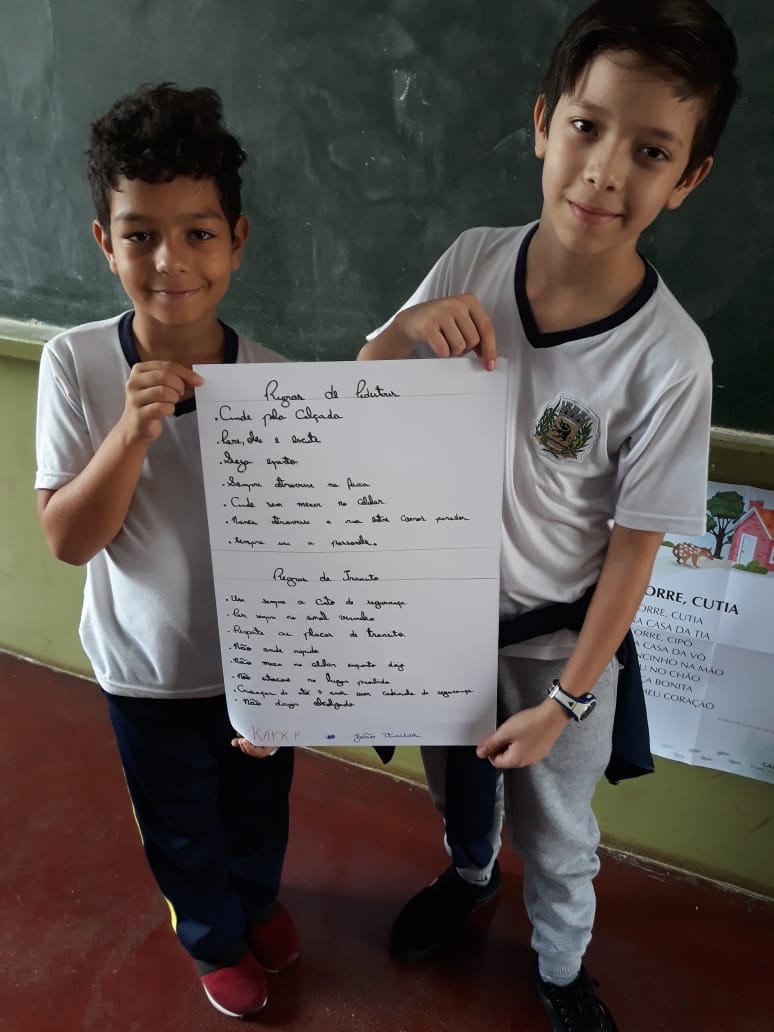 Regras de Pedestres
. Ande pela Calçada
. Pare, olhe e escute
. Seja esperto
. Sempre atravesse na faixa
. Ande sem mexer no celular.
. Nunca atravesse a rua entre carros parados
. Sempre use a passarela.
Regras de Transito
. Use sempre o cinto de segurança
. Pare sempre no sinal vermelho
. Respeite as placas de transito
. Não ande rapido
. Não mexa no celular enquanto dirige
. Não estacione no lugar proibido
. Crianças de até 7 anos usem cadeirinha de segurança
. Não dirija
KAYKY João
ORRE, CUTIA
ORRE, CUTIA
NA CASA DA TIA
ORRE, CIPÓ
A CASA DA VÓ
NCINHO NA MÃO
U NO CHÃO
ÇA BONITA
MEU CORAÇÃO